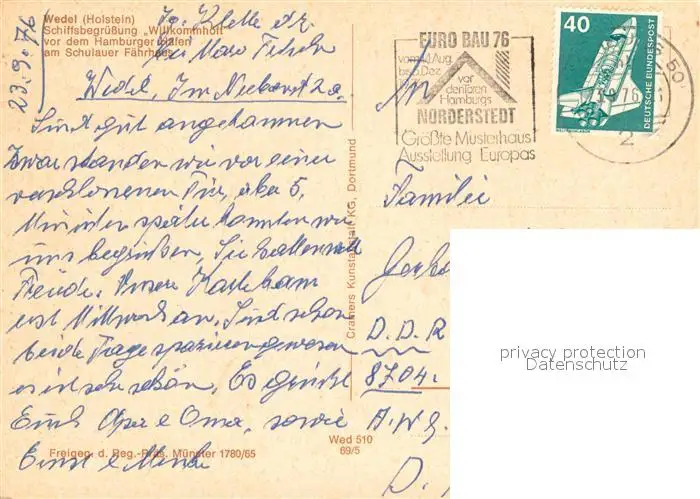 Wedel (Holstein)
Schiffsbegrüßung "Willkommhöft"
vor dem Hamburger Hafen
am Schulauer Fährhaus
23.9.76
Wedel, Im
Sind gut angekommen
Zwar standen wir vor einer
verschlossenen Tür, aber 5
Minuten später konnten wir
uns begrüßen. Sie hatten
Freude. Unsere Karte kam
erst Mittwoch an. Sind schon
beide Tage spazieren gewesen
es ist sehr schön. Es grüßt
Euch Opa & Oma, sowie
Ernst &
Freigeg. d. Reg.-Präs. Münster 1780/65
Wed 510
69/5
Cramers Kunstanstalt KG, Dortmund
EURO BAU 76
vom 1. Aug.
bis 5. Dez.
vor
den Toren
Hamburgs
NORDERSTEDT
Größte Musterhaus
Ausstellung Europas
40
DEUTSCHE BUNDESPOST
50
76
2
An
Familie
D.D.R
8704
A.W.G.
D.
privacy protection
Datenschutz